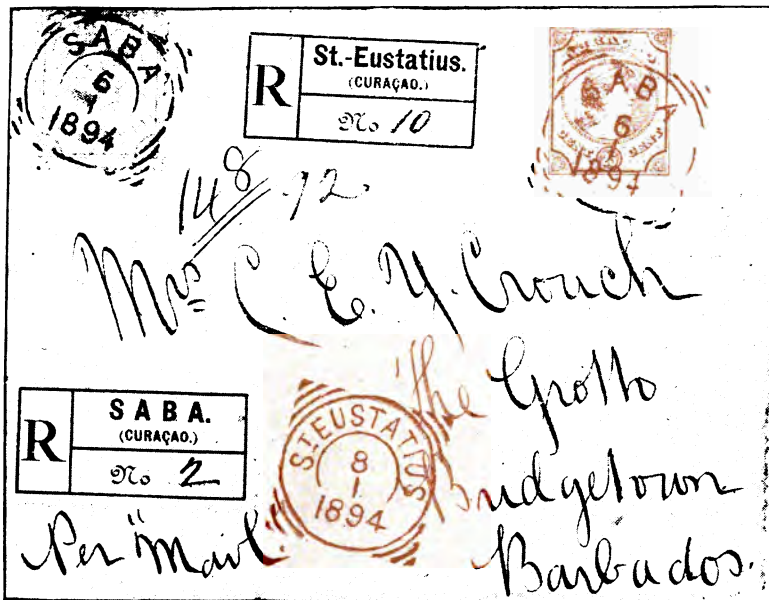 SABA
6
1
1894
R
St.-Eustatius.
(CURAÇAO.)
No 10
SABA
6
1
1894
148 12
Mrs C. E. Y. Crouch
The Grotto
Bridgetown
Barbados.
R
SABA.
(CURAÇAO.)
No 2
St EUSTATIUS
8
1
1894
Per "Mail